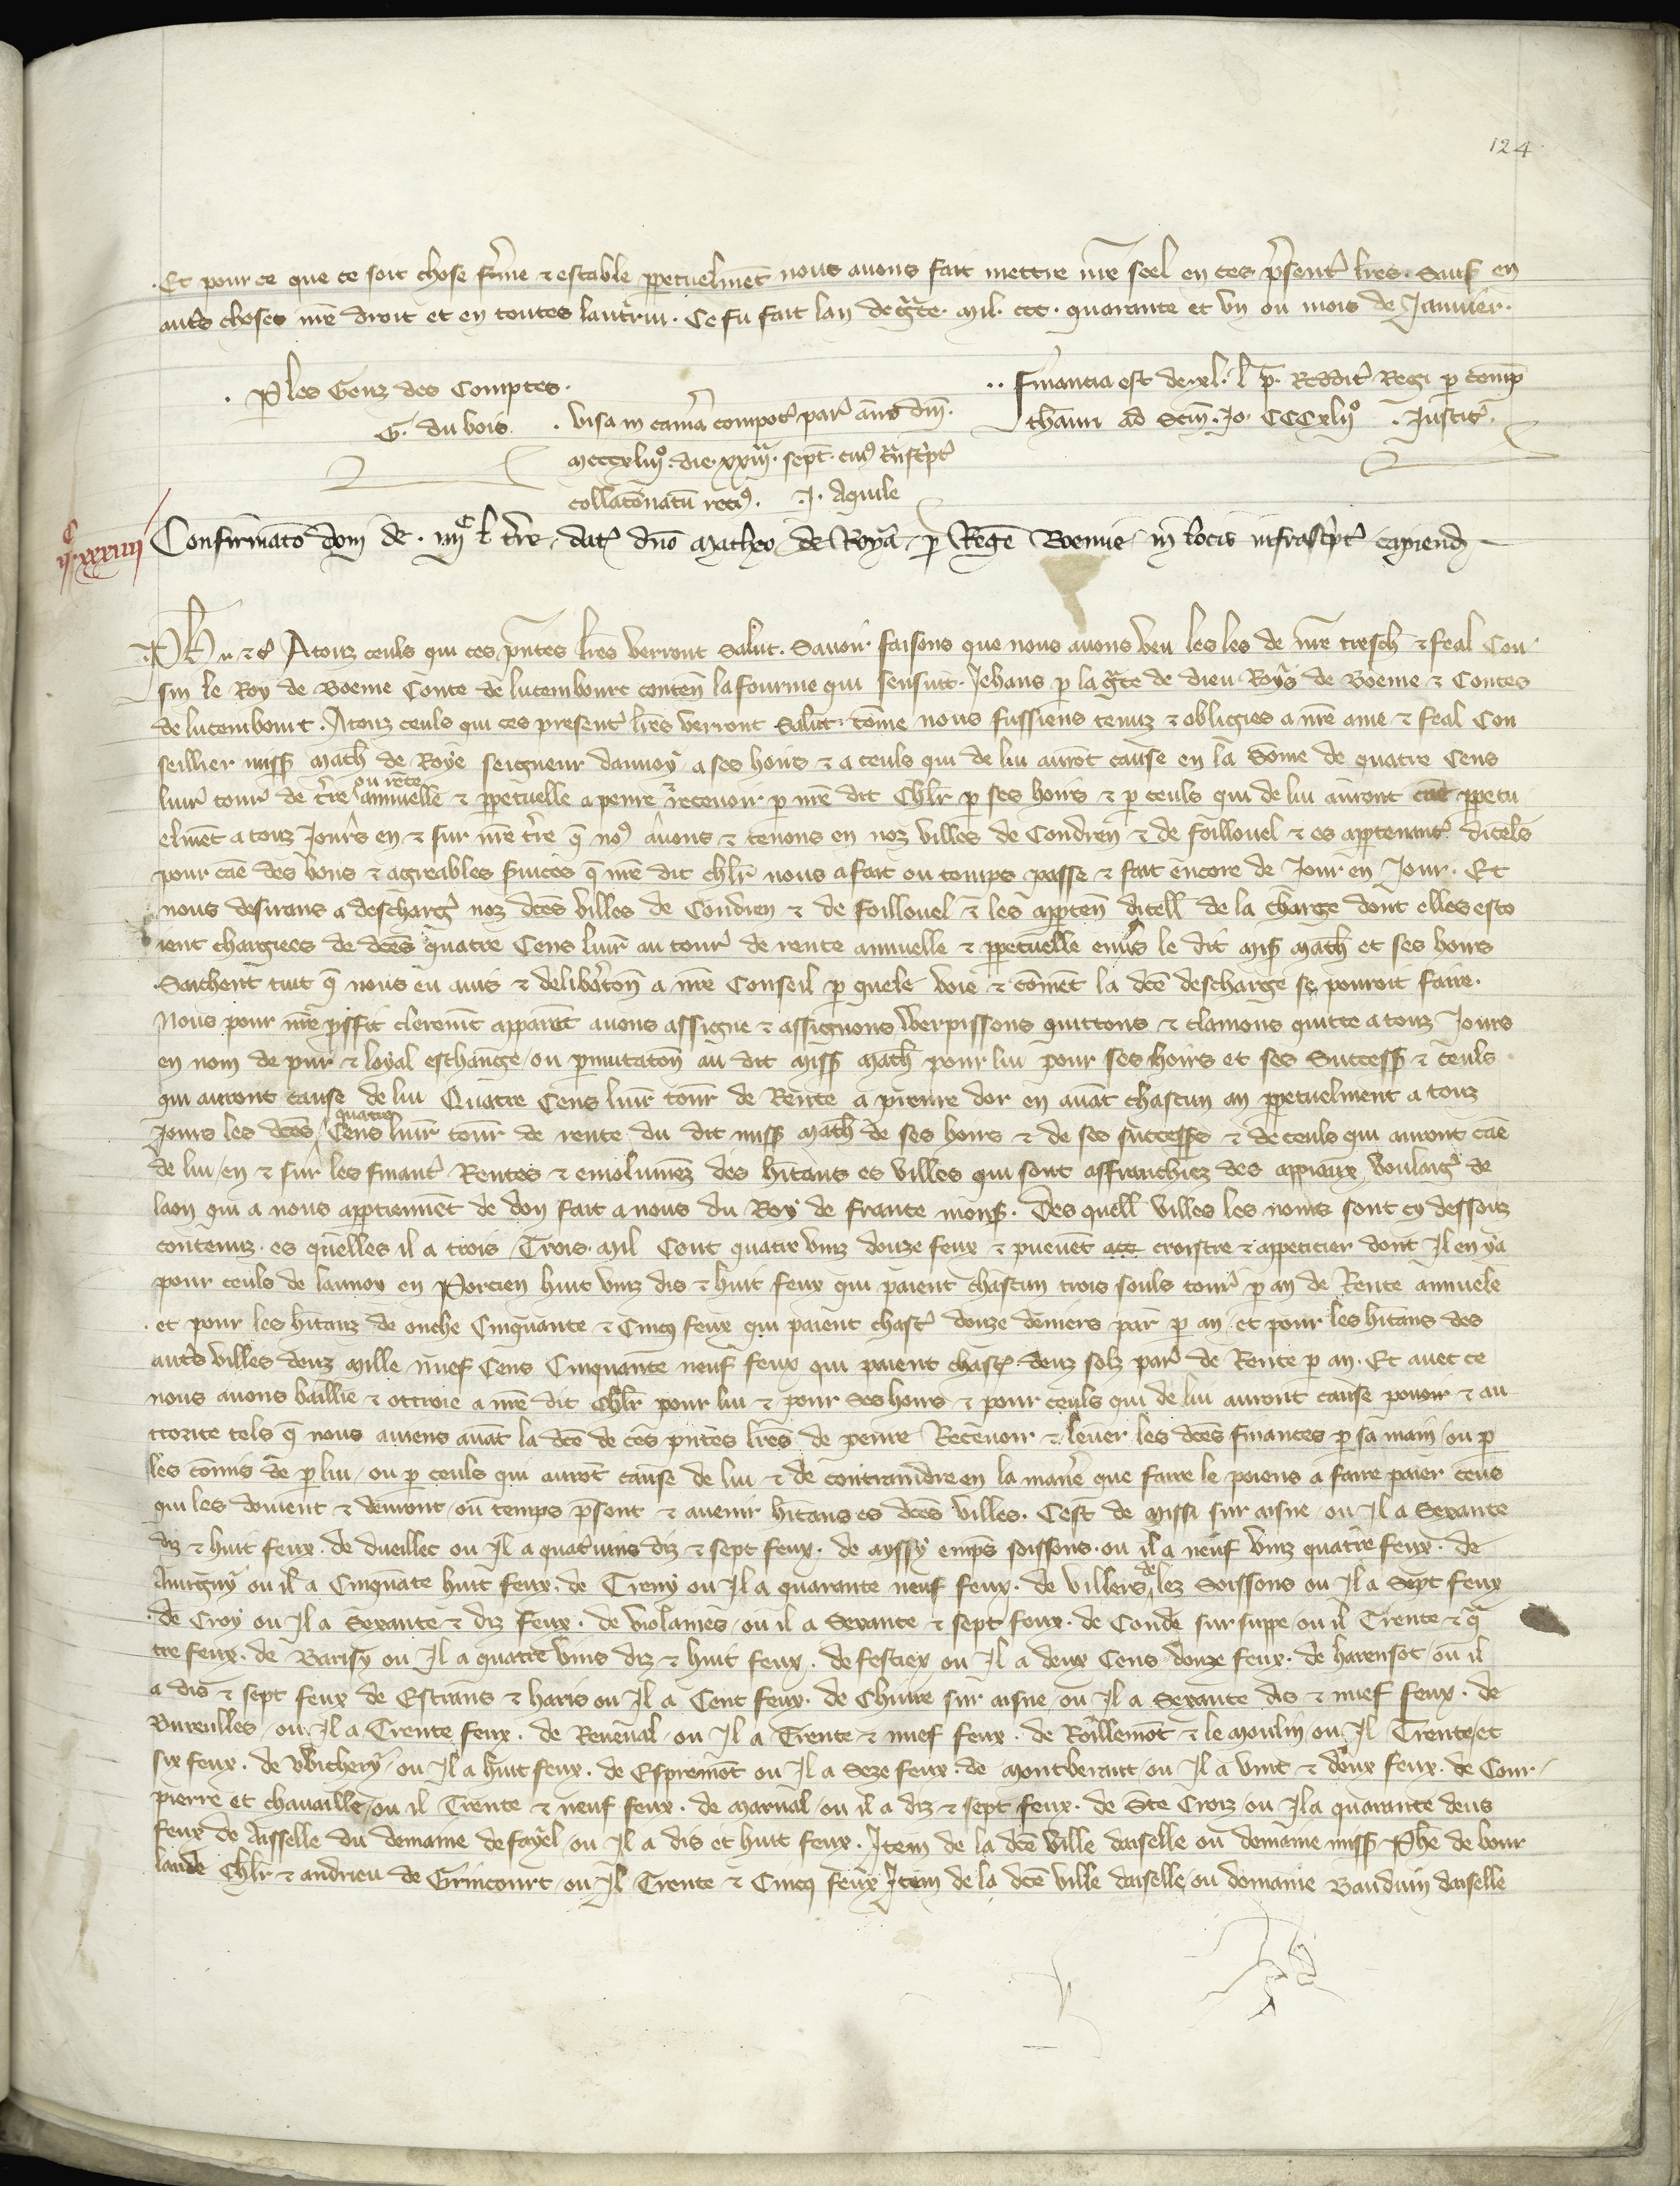 124
Et pour ce que ce soit chose ferme & estable ppetuelment nous auons fait mettre nre seel en ces psent lres. Sauf en
autres choses nre droit et en toutes lautrui. Ce fu fait lan de grce. mil. ccc. quarante et vn ou mois de Januier.
P les Genz des Comptes.
G. du bois.
visa in cama compot par anno dni.
mcccxliio. die. xxiii. sept. cui tnscpt
collaconatu . J. Aquile
.. Financia est de xl. l p. Reddit Regi p comp
thauri ad Scm. Jo. CCCxliio . Justic.
iic xxxiiii
Confirmaco doni de. iiiic l tre dat dno Matheo de Roya p Rege Boemie in locis infrascpt capiend
Ph &c A touz ceuls qui ces pntes lres verront Salut. Sauoir faisons que nous auons veu les les de nre tresch & feal Cou
sin le Roy de Boeme Conte de lucembourc conten la fourme qui sensuit. Jehans p la grce de dieu Roys de Boeme & Contes
de lucembourt. A touz ceuls qui ces present lres verront Salut. come nous fussiens tenuz & obligies a nre ame & feal Con
seillier miss math de Roye seigneur dannoy a ses hoirs & a ceuls qui de lui auront cause en la some de quatre Cens
liur tour de tre ou rente annuelle & ppetuelle a penre & receuoir p nre dit chlr p ses hoirs & p ceuls qui de lui auront cae ppetu
elment a touz Jours en & sur nre tre q no auons & tenons en noz villes de Condren & de faillouel & es apptenant dicels
pour cae des bons & agreables suices q nre dit chlr nous a fait ou temps passe & fait encore de Jour en Jour. Et
nous desirans a descharg noz dces villes de Condren & de foillouel & les apten dicell de la charge dont elles esto
ient chargiees de dces quatre Cens liur au tour de rente annuelle & ppetuelle enuers le dit mss math et ses hoirs
Sachent tuit q nous eu auis & deliberacon a nre Conseil p quele voie & coment la dce descharge se pourroit faire.
Nous pour nre proffit clerement apparent auons assigne & assignons Werpissons quittons & clamons quitte a touz Jours
en nom de pur & loyal eschange ou pmutacon au dit miss math pour lui pour ses hoirs et ses Success & ceuls
qui auront cause de lui Quatre Cens liur tour de Rente a prenre dor en auat chascun an ppetuelment a touz
Jours les dces quatre Cens liur tour de rente du dit miss math de ses hoirs & de ses success & de ceuls qui auront cae
de lui en & sur les financ Rentes & emolumez des hitans es villes qui sont affranchiez des appiaux voulaig de
laon qui a nous apptiennent de don fait a nous du Roy de france mons. Des quell villes les noms sont cy dessouz
contenuz. es quelles il a trois Trois. mil Cent quatre vinz douze feux & pueuent croistre & appeticier dont Il en ya
pour ceuls de launoy en Porcien huit vinz dis & huit feux qui paient chascun trois souls tour p an de Rente annuele
et pour les hitanz de onche Cinquante & Cinq feux qui paient chasc douze deniers par p an. et pour les hitans des
autres villes deuz mille nuef Cens Cinquante neuf feux qui paient chasc deuz solz par de Rente p an. Et auec ce
nous auons baillie & ottroie a nre dit Chlr pour lui & pour Ses hoirs & pour ceuls qui de lui auront cause pouoir & au
ctorite tels q nous auiens auat la dce de ces pntes lres de penre Receuoir & leuer les dces finances p sa main ou p
les comis de p lui ou p ceuls qui auront cause de lui & de contraindre en la manere que faire le poiens a faire paier ceus
qui les doiuent & deuront ou temps psent & auenir hitans es dces villes. Cest de missi sur aisne ou Il a Sexante
diz & huit feux. de dueillet ou Il a quatuins diz & sept feux. de ayssy empres soissons. ou il a neuf vinz quatre feux. de
Autigny ou il a Cinquate huit feux. de Treny ou Il a quarante neuf feux. de Villers de lez Soissons ou Il a Sept feux
de Croy ou Il a Sexante & diz feux. de violaines ou il a Sexante & sept feux. de Conde sur suppe ou il Trente & qa
tre feux. de Barisy ou Il a quatre vins diz & huit feux. de festiex ou Il a deux Cens douze feux. de harensot ou il
a dis & sept feux de Estraus & haris ou Il a Cent feux. de Chiuire sur aisne ou Il a Sexante dis & nuef feux. de
Vureulles ou Il a Trente feux. de Reneual ou Il a Trente & nuef feux. de Roullemot & le moulin ou Il Trente et
six feux. de Wichery ou Il a huit feux. de Espremot ou Il a Seze feux. de montberaut ou Il a vint & deux feux. de Cour
pierre et chauaille ou il Trente & neuf feux. de marual ou il a diz & sept feux. de Ste Croiz ou Il a quarante deus
feux de Aisselle du demaine de fayel ou Il a dis et huit feux. Item de la dce ville daiselle ou demaine miss Phe de bour
lande Chlr & andrieu de Grincourt ou Il Trente & Cinq feux Item de la dce ville daiselle ou domaine Bauduin daiselle